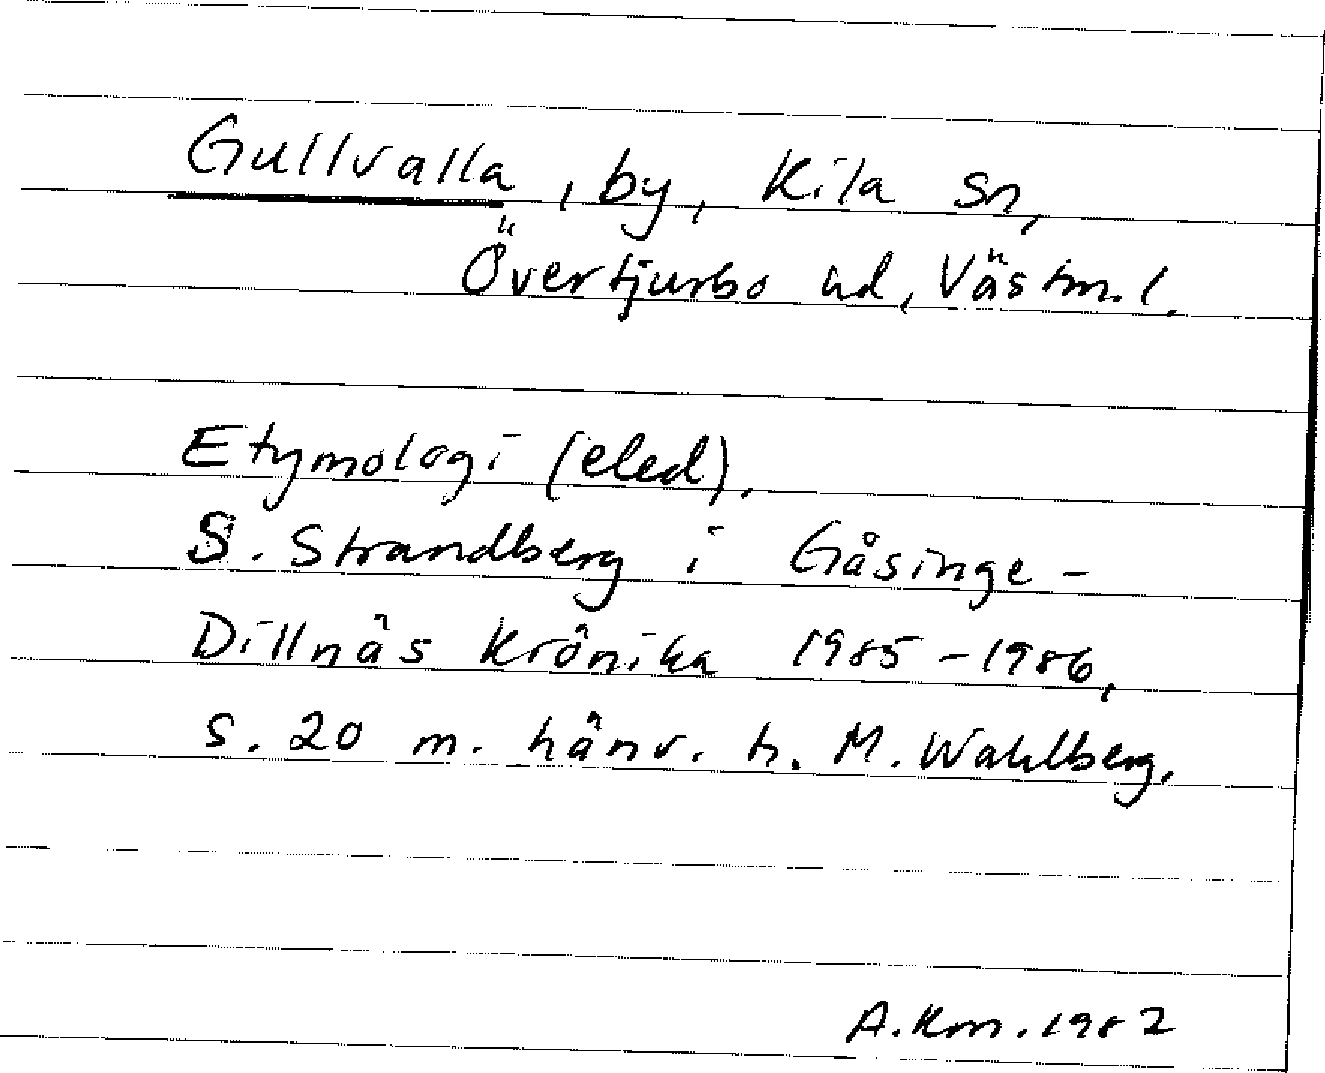 Gullvalla, by, Kila sn,
Övertjurbo hd, Västm.l.
Etymologi (eled).
S. Strandberg i Gåsinge-
Dillnäs Krönika 1985-1986,
s. 20 m. hänv. t. M. Wahlberg.
A.Rm. 1987